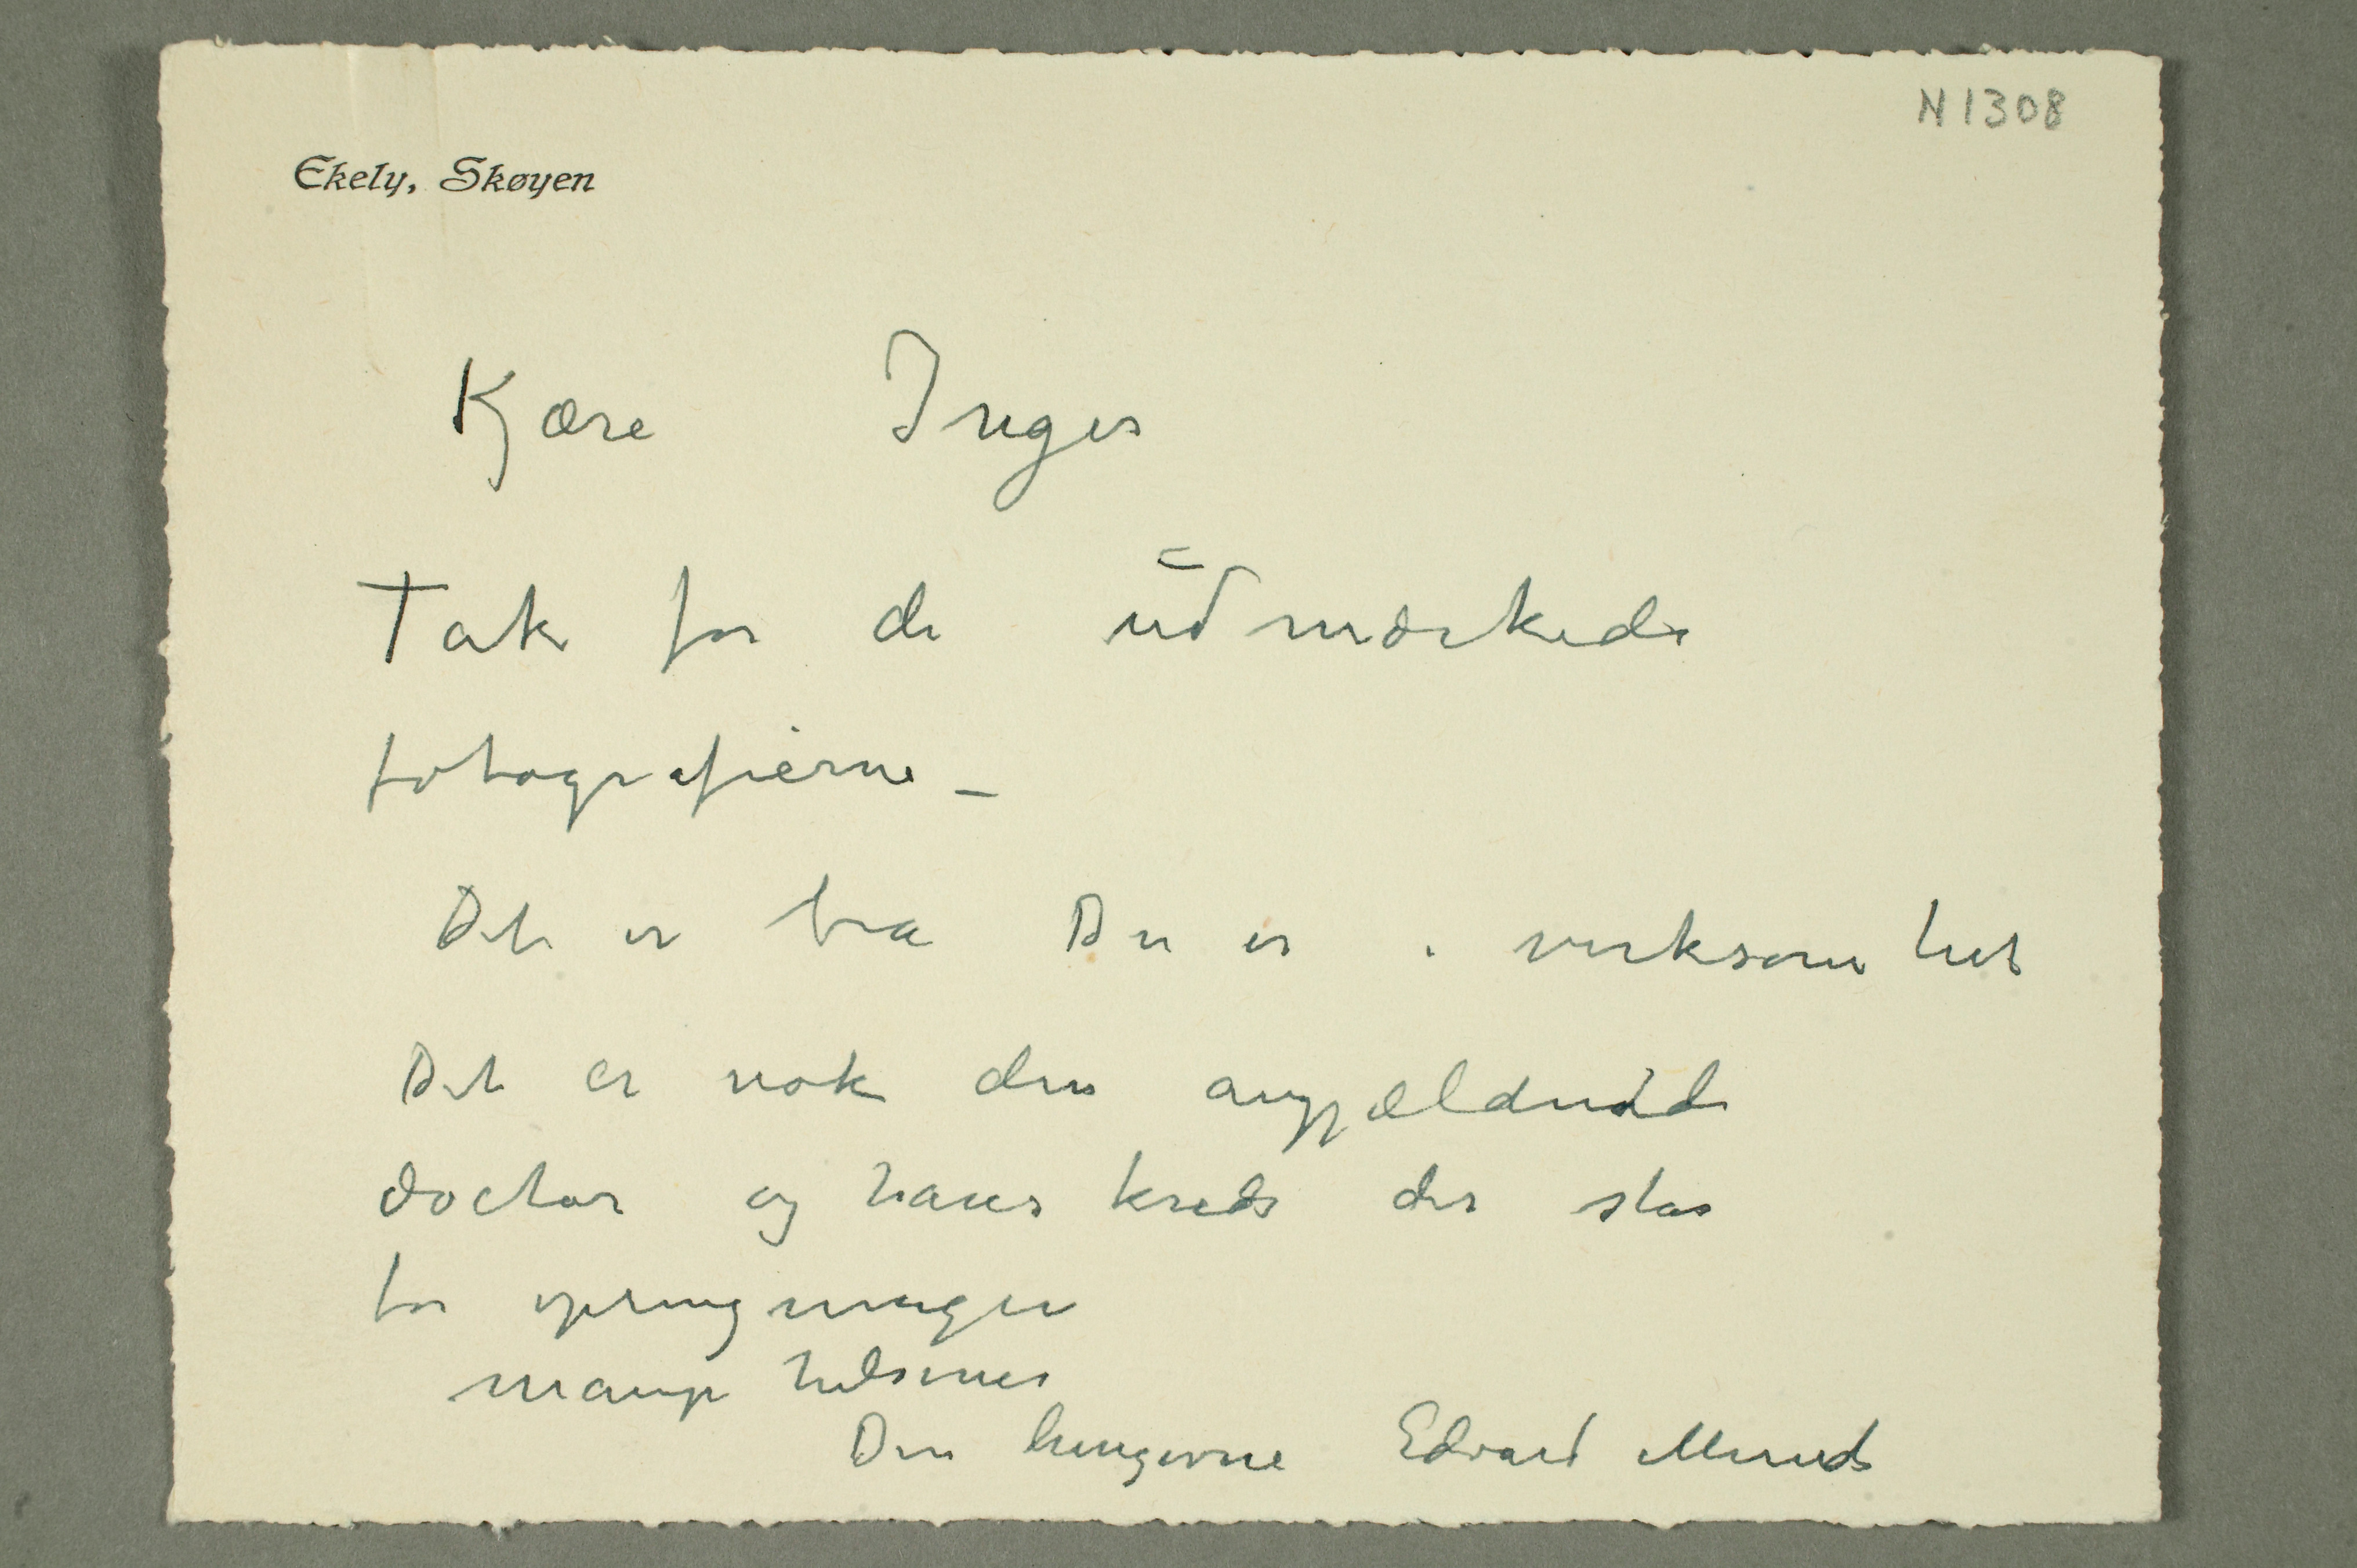 N 1308
Ekely, Skøyen
Kjære Inger
Tak for de udmærkede
fotografierne –
Det er bra Du er i virksomhet
Det er nok den angjældende
doctor og hans kreds der står
for opringninger
mange hilsener
Din hengivne Edvard Munch